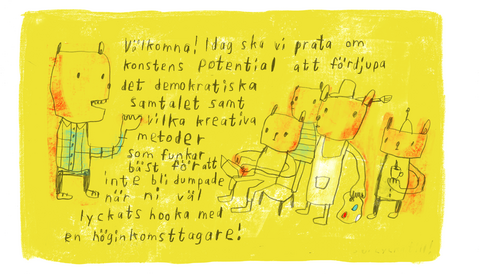 Välkomna! Idag ska vi prata om
konstens potential att fördjupa
det demokratiska
samtalet samt
vilka kreativa
metoder
som funkar
bäst för att
inte bli dumpade
när ni väl
lyckats hooka med
en höginkomsttagare!